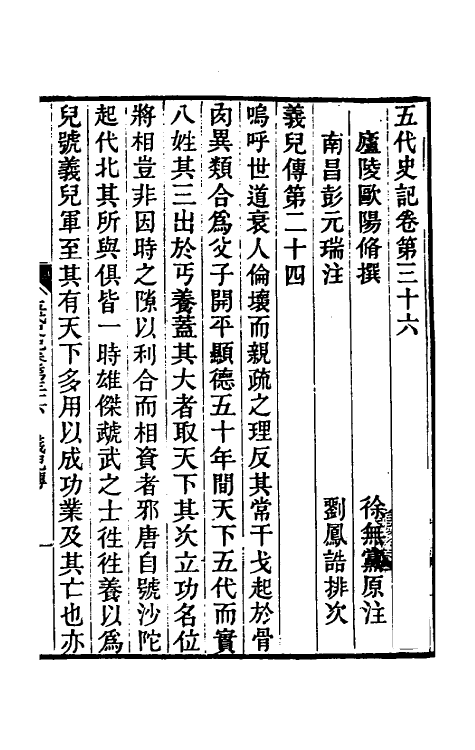 五代史記卷第三十六
廬陵歐陽脩撰　徐無黨原注
南昌彭元瑞注　劉鳳誥排次
義兒傳第二十四
嗚呼世道衰人倫壞而親疏之理反其常干戈起於骨
肉異類合為父子開平顯德五十年間天下五代而實
八姓其三出於丐養蓋其大者取天下其次立功名位
將相豈非因時之隙以利合而相資者邪唐自號沙陀
起代北其所與俱皆一時雄傑虣武之士徃徃養以為
兒號義兒軍至其有天下多用以成功業及其亡也亦
義兒傳　一